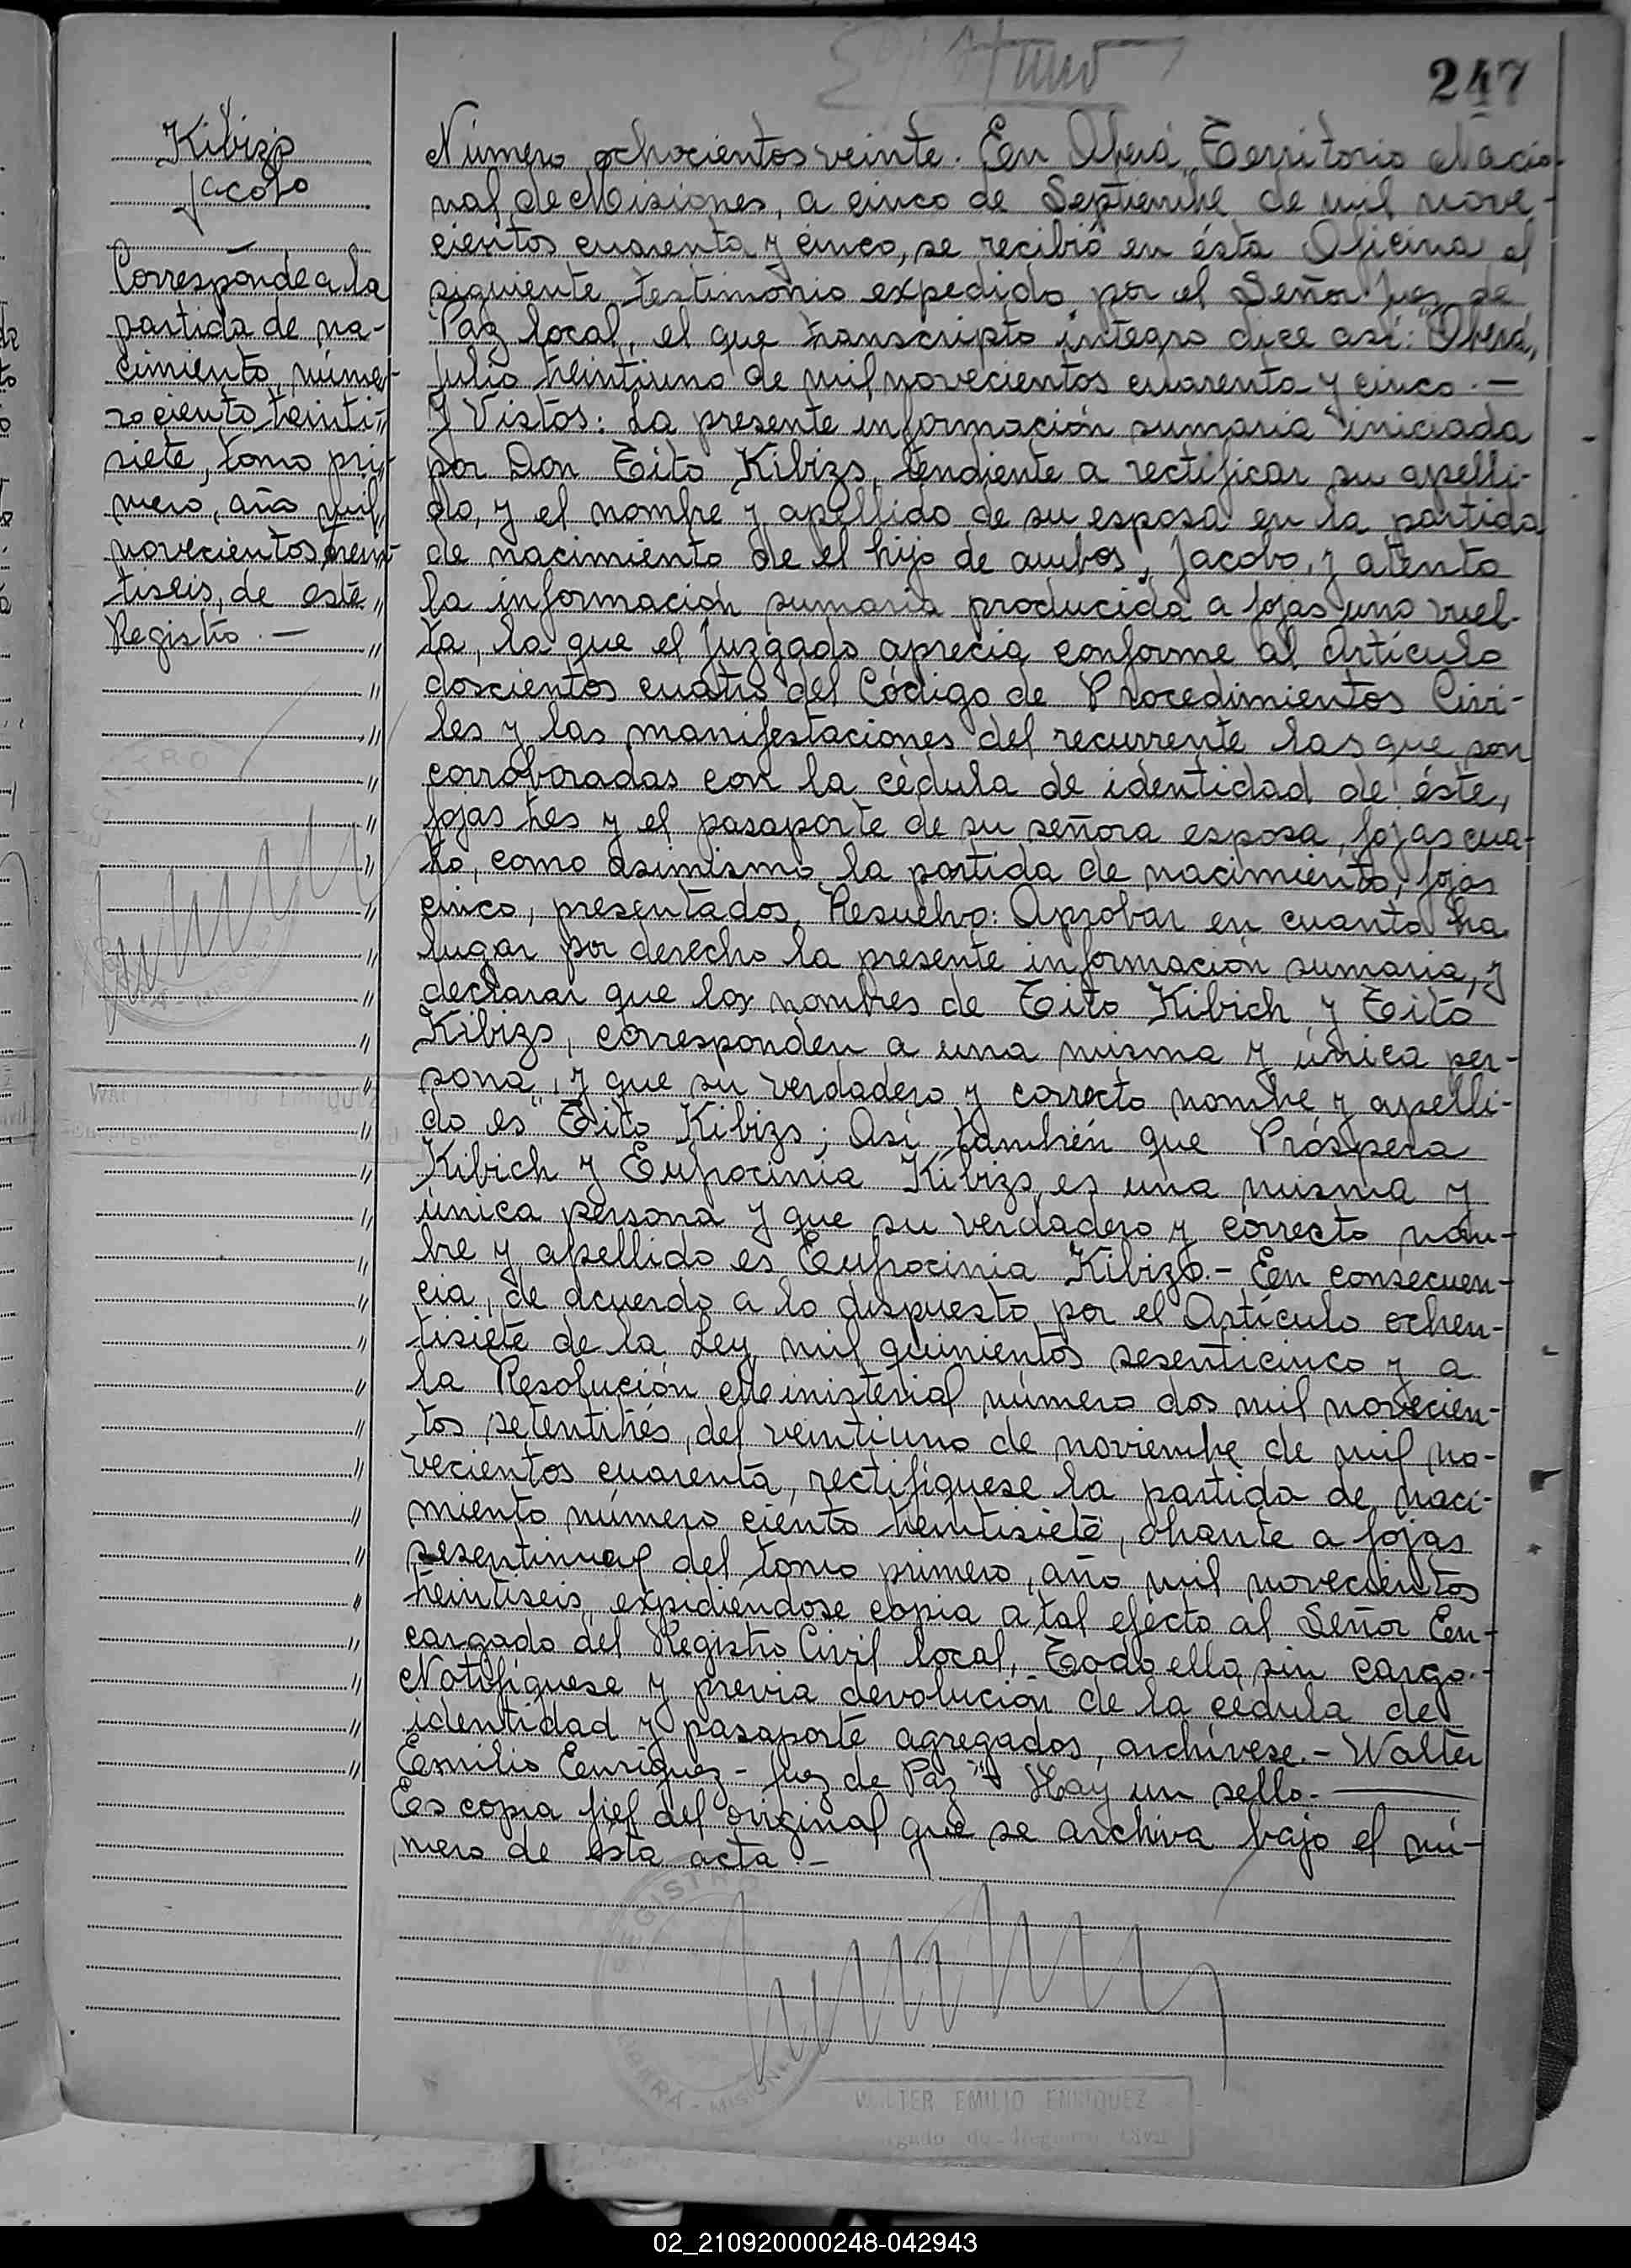 247
Kibizs
Jacobo
Corresponde a la
partida de na-
cimiento, núme-
ro ciento treinti-
siete, tomo pri-
mero, año mil
novecientos trein-
tiseis, de este
Registro.—
Número ochocientos veinte. En Oberá, Territorio Nacio-
nal de Misiones, a cinco de Septiembre de mil nove-
cientos cuarenta y cinco, se recibió en ésta Oficina el
siguiente testimonio expedido por el Señor Juez de
Paz local, el que transcripto íntegro dice así: "Oberá,
Julio treintiuno de mil novecientos cuarenta y cinco.—
Y Vistos: La presente información sumaria iniciada
por Don Tito Kibizs, tendiente a rectificar su apelli-
do, y el nombre y apellido de su esposa en la partida
de nacimiento de el hijo de ambos, Jacobo, y atento
la información sumaria producida a fojas uno vuel-
ta, la que el Juzgado aprecia conforme al Artículo
doscientos cuatro del Código de Procedimientos Civi-
les y las manifestaciones del recurrente las que son
corroboradas con la cédula de identidad de éste,
fojas tres y el pasaporte de su señora esposa, fojas cua-
tro, como asimismo la partida de nacimiento, fojas
cinco, presentados, Resuelvo: Aprobar en cuanto ha
lugar por derecho la presente información sumaria, y
declarar que los nombres de Tito Kibich y Tito
Kibizs, corresponden a una misma y única per-
sona, y que su verdadero y correcto nombre y apelli-
do es Tito Kibizs; Así también que Próspera
Kibich y Eufrocinia Kibizs es una misma y
única persona y que su verdadero y correcto nom-
bre y apellido es Eufrocinia Kibizs.- En consecuen-
cia, de acuerdo a lo dispuesto por el Artículo ochen-
tisiete de la Ley mil quinientos sesenticinco y a
la Resolución Ministerial número dos mil novecien-
tos setentitrés, del veintiuno de noviembre de mil no-
vecientos cuarenta, rectifíquese la partida de naci-
miento número ciento treintisiete, obrante a fojas
sesentinueve del tomo primero, año mil novecientos
treintiseis, expidiéndose copia a tal efecto al Señor En-
cargado del Registro Civil local, Todo ello sin cargo.-
Notifíquese y previa devolución de la cédula de
identidad y pasaporte agregados, archívese.- Walter
Emilio Enriquez - Juez de Paz" - Hay un sello.-
Es copia fiel del original que se archiva bajo el nú-
mero de esta acta.-
REGISTRO
OBERÁ - MISIONES
WALTER EMILIO ENRIQUEZ
02_210920000248-042943